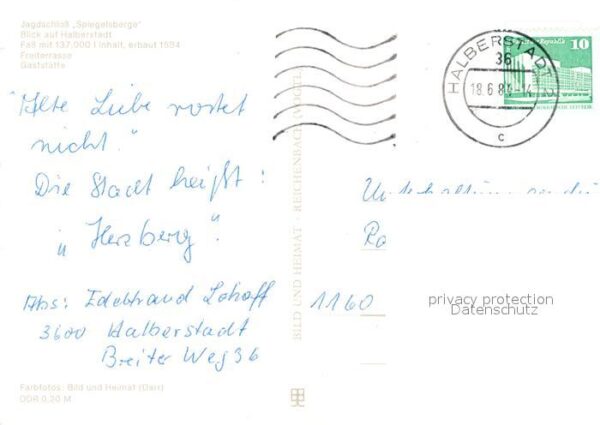 Jagdschloß „Spiegelsberge"
Blick auf Halberstadt
Faß mit 137.000 l Inhalt, erbaut 1594
Freiterrasse
Gaststätte
"Alte Liebe rostet
nicht."
Die Stadt heißt:
„Herzberg".
Abs: Edeltraud Lohoff
3600 Halberstadt
Breiter Weg 36
Farbfotos: Bild und Heimat (Darr)
DDR 0,20 M
BILD UND HEIMAT · REICHENBACH (VOGTL)
HALBERSTADT 2
36
18.6.84-14
c
10
1160
privacy protection
Datenschutz